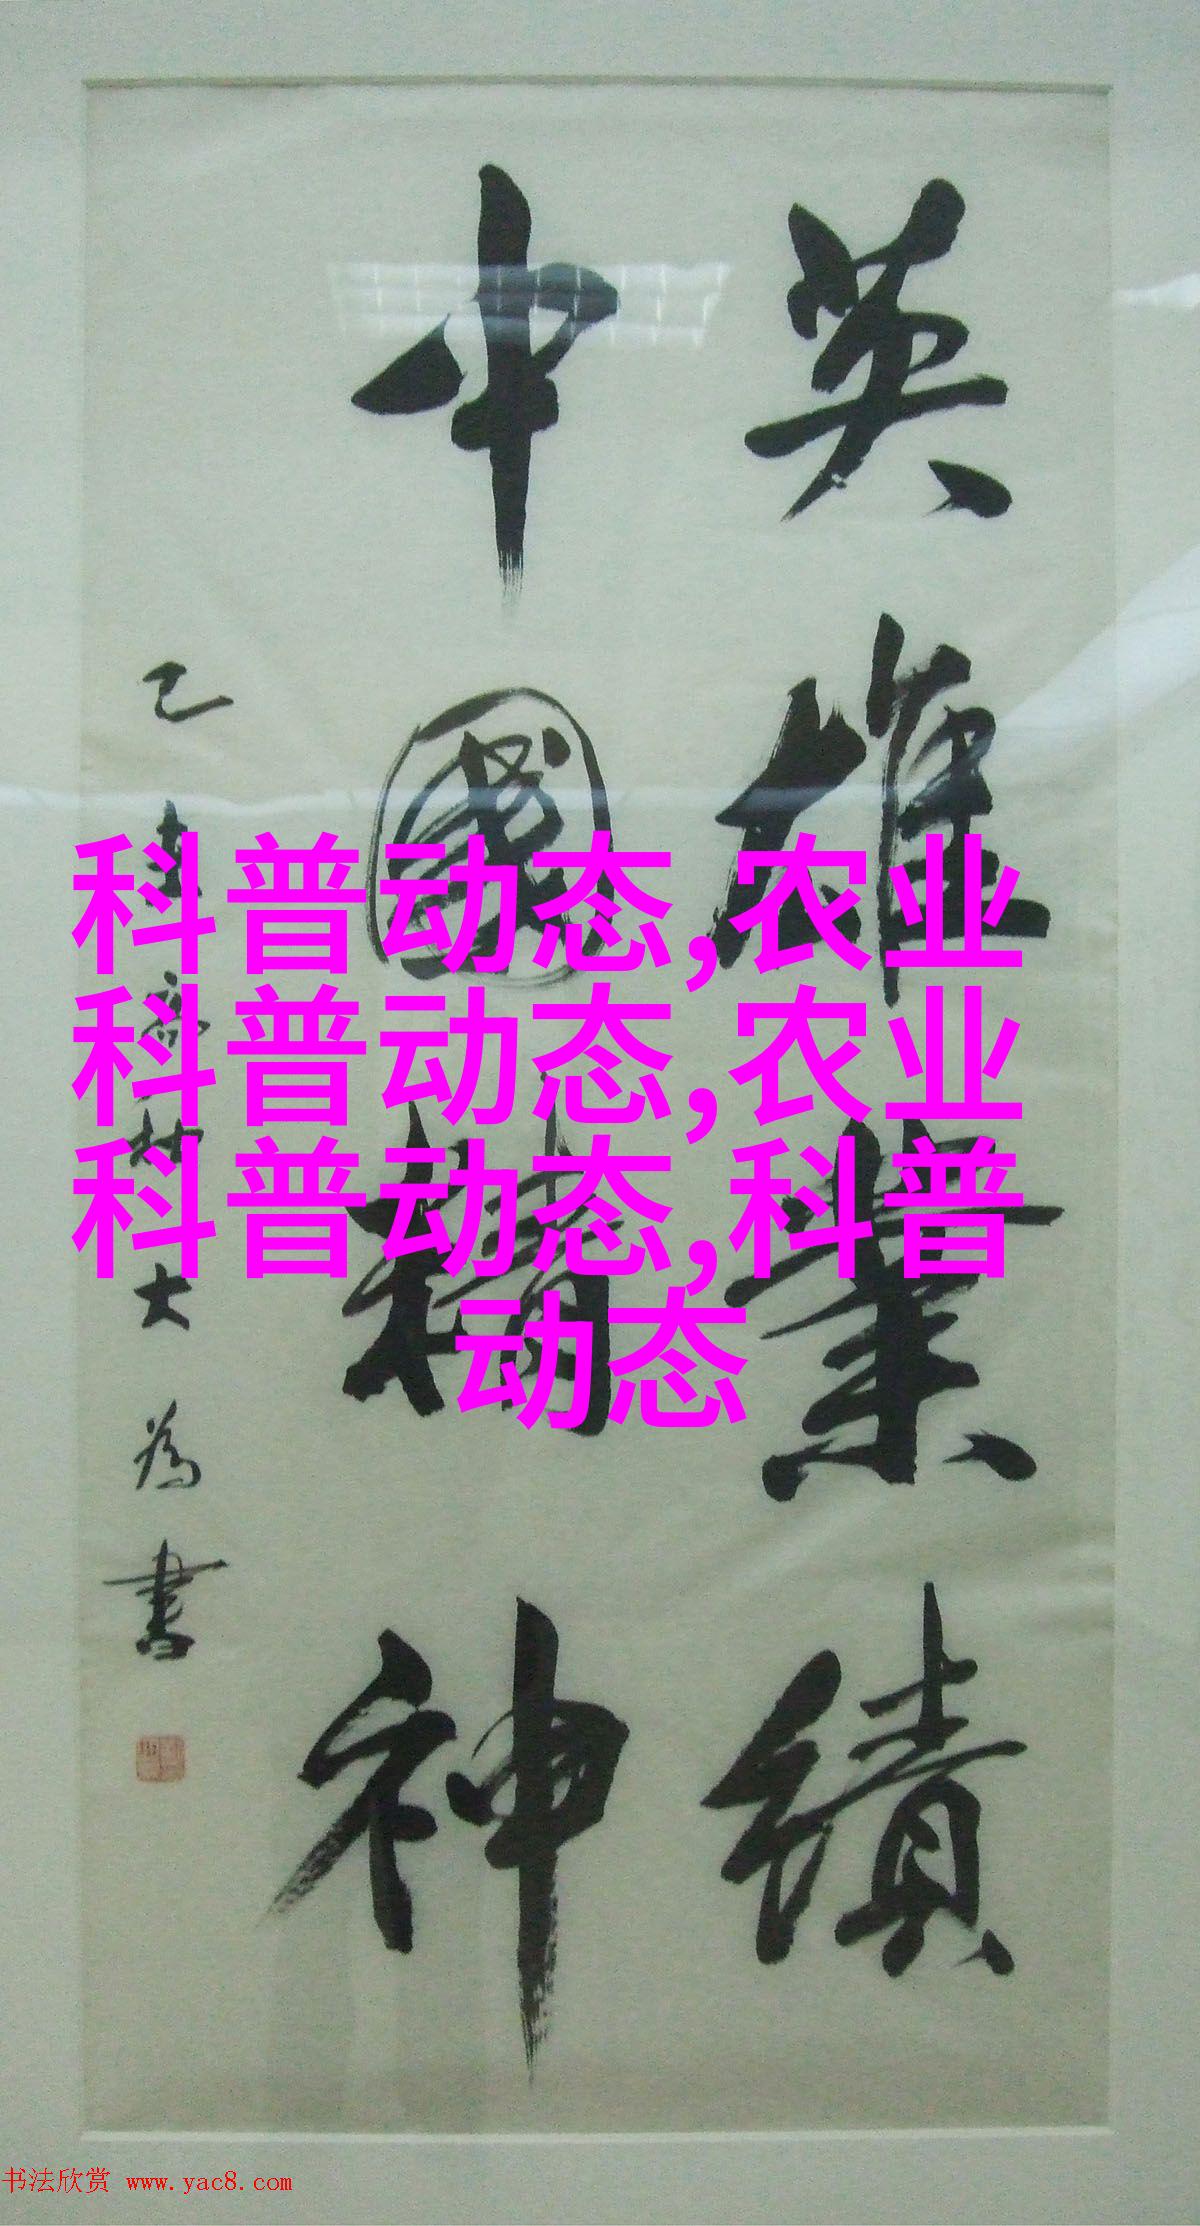 英雄業績
中國精神
科普动态,农业
科普动态,农业
科普动态,科普
动态
大為書
书法欣赏 www.yac8.com